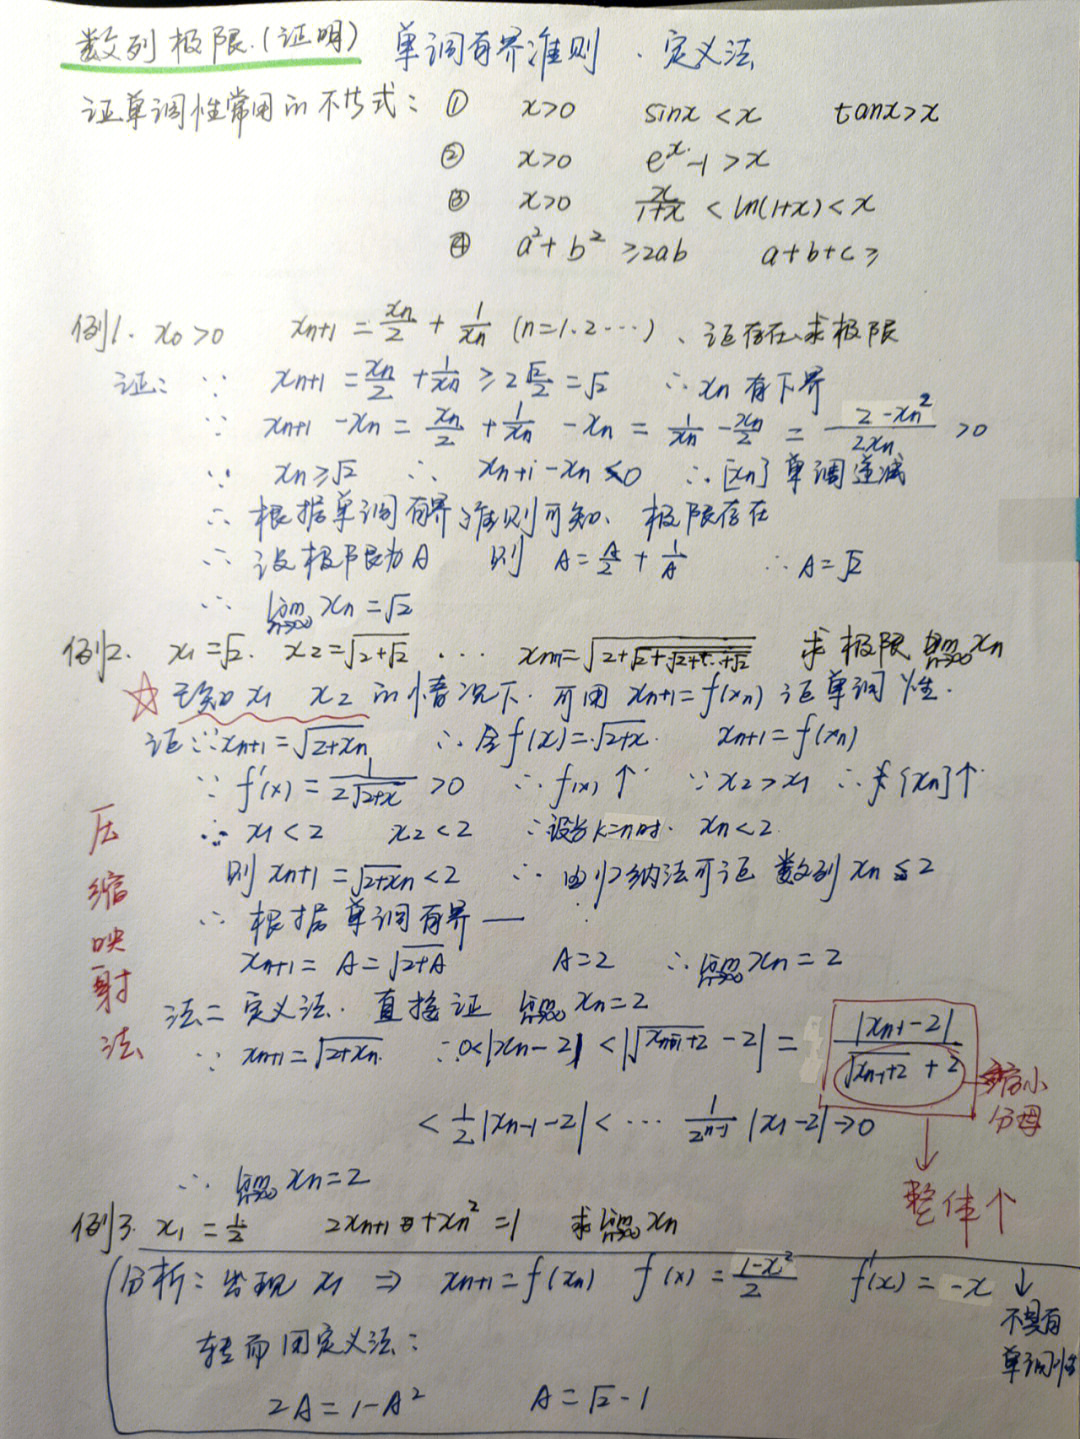 数列极限.(证明) 单调有界准则 、定义法
证单调性常用的不等式: ① x>0 sinx<x tanx>x
② x>0 eˣ-1>x
③ x>0 x/(1+x) < ln(1+x) < x
④ a²+b² ≥2ab a+b+c≥
例1. x₀>0 xₙ₊₁ = xₙ/2 + 1/xₙ (n=1.2…) 、证存在、求极限
证: ∵ xₙ₊₁ = xₙ/2 + 1/xₙ ≥ 2 √2/2 = √2 ∴ xₙ 有下界
∵ xₙ₊₁ - xₙ = xₙ/2 + 1/xₙ - xₙ = 1/xₙ - xₙ/2 = (2-xₙ²)/(2xₙ) >0
∵ xₙ≥√2 ∴ xₙ₊₁-xₙ≤0 ∴ [xₙ] 单调递减
∴ 根据单调有界准则可知、极限存在
∴ 设极限为A 则 A = A/2 + 1/A ∴ A=√2
∴ lim n→∞ xₙ=√2
例2. x₁=√2. x₂=√(2+√2) . … =√(2+√(2+√(2+…+√2))) 求极限 lim n→∞ xₙ
☆ 已知 x₁ x₂ 的情况下. 可用 xₙ₊₁=f(xₙ) 证单调性.
证: ∵ xₙ₊₁=√(2+xₙ) ∴ 令f(x)=√(2+x). xₙ₊₁=f(xₙ)
∵ f'(x)= 1/(2√(2+x)) >0 ∴ f(x)↑ ∵ x₂>x₁ ∴ {xₙ}↑
∵ x₁<2 x₂<2 ∴ 设当k=n时. xₙ<2
则 xₙ₊₁=√(2+xₙ)<2 ∴ 由归纳法可证 数列xₙ≤2
∴ 根据单调有界 —
xₙ₊₁= A=√(2+A) A=2 ∴ lim n→∞ xₙ=2
压缩映射法
法二 定义法. 直接证 lim n→∞ xₙ=2
∵ xₙ₊₁=√(2+xₙ) ∴ 0<|xₙ-2| < |√(xₙ₋₁+2) - 2| = |xₙ₋₁-2| / (√(xₙ₋₁+2) + 2) 缩小分母
< 1/2 |xₙ₋₁-2| < … 1/2ⁿ⁻¹ |x₁-2| →0
整体个
∴ lim n→∞ xₙ=2
例3. x₁=1/2 2xₙ₊₁ +xₙ²=1 求 lim n→∞ xₙ
分析: 发现 x₁ ⇒ xₙ₊₁=f(xₙ) f(x)=(1-x²)/2 f'(x)=-x ↓
不具有单调性
转而用定义法:
2A=1-A² A=√2-1